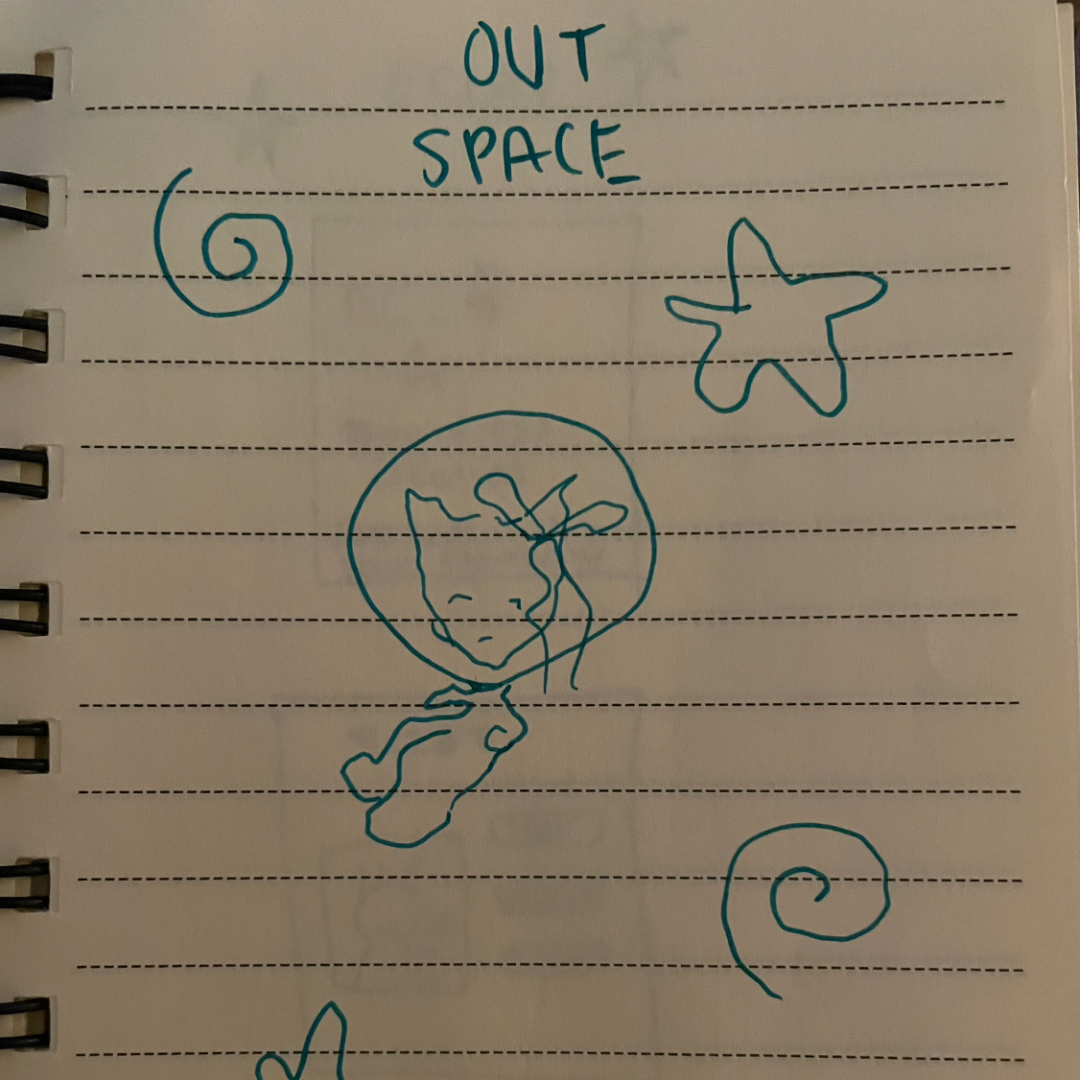 OUT
SPACE